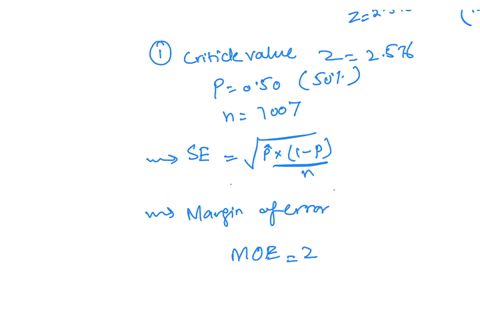 ① Critide value Z = 2.576
P = 0.50 (50%)
n = 1007
→ SE = √(p̂ × (1-p) / n)
→ Margin of error
MOE = 2